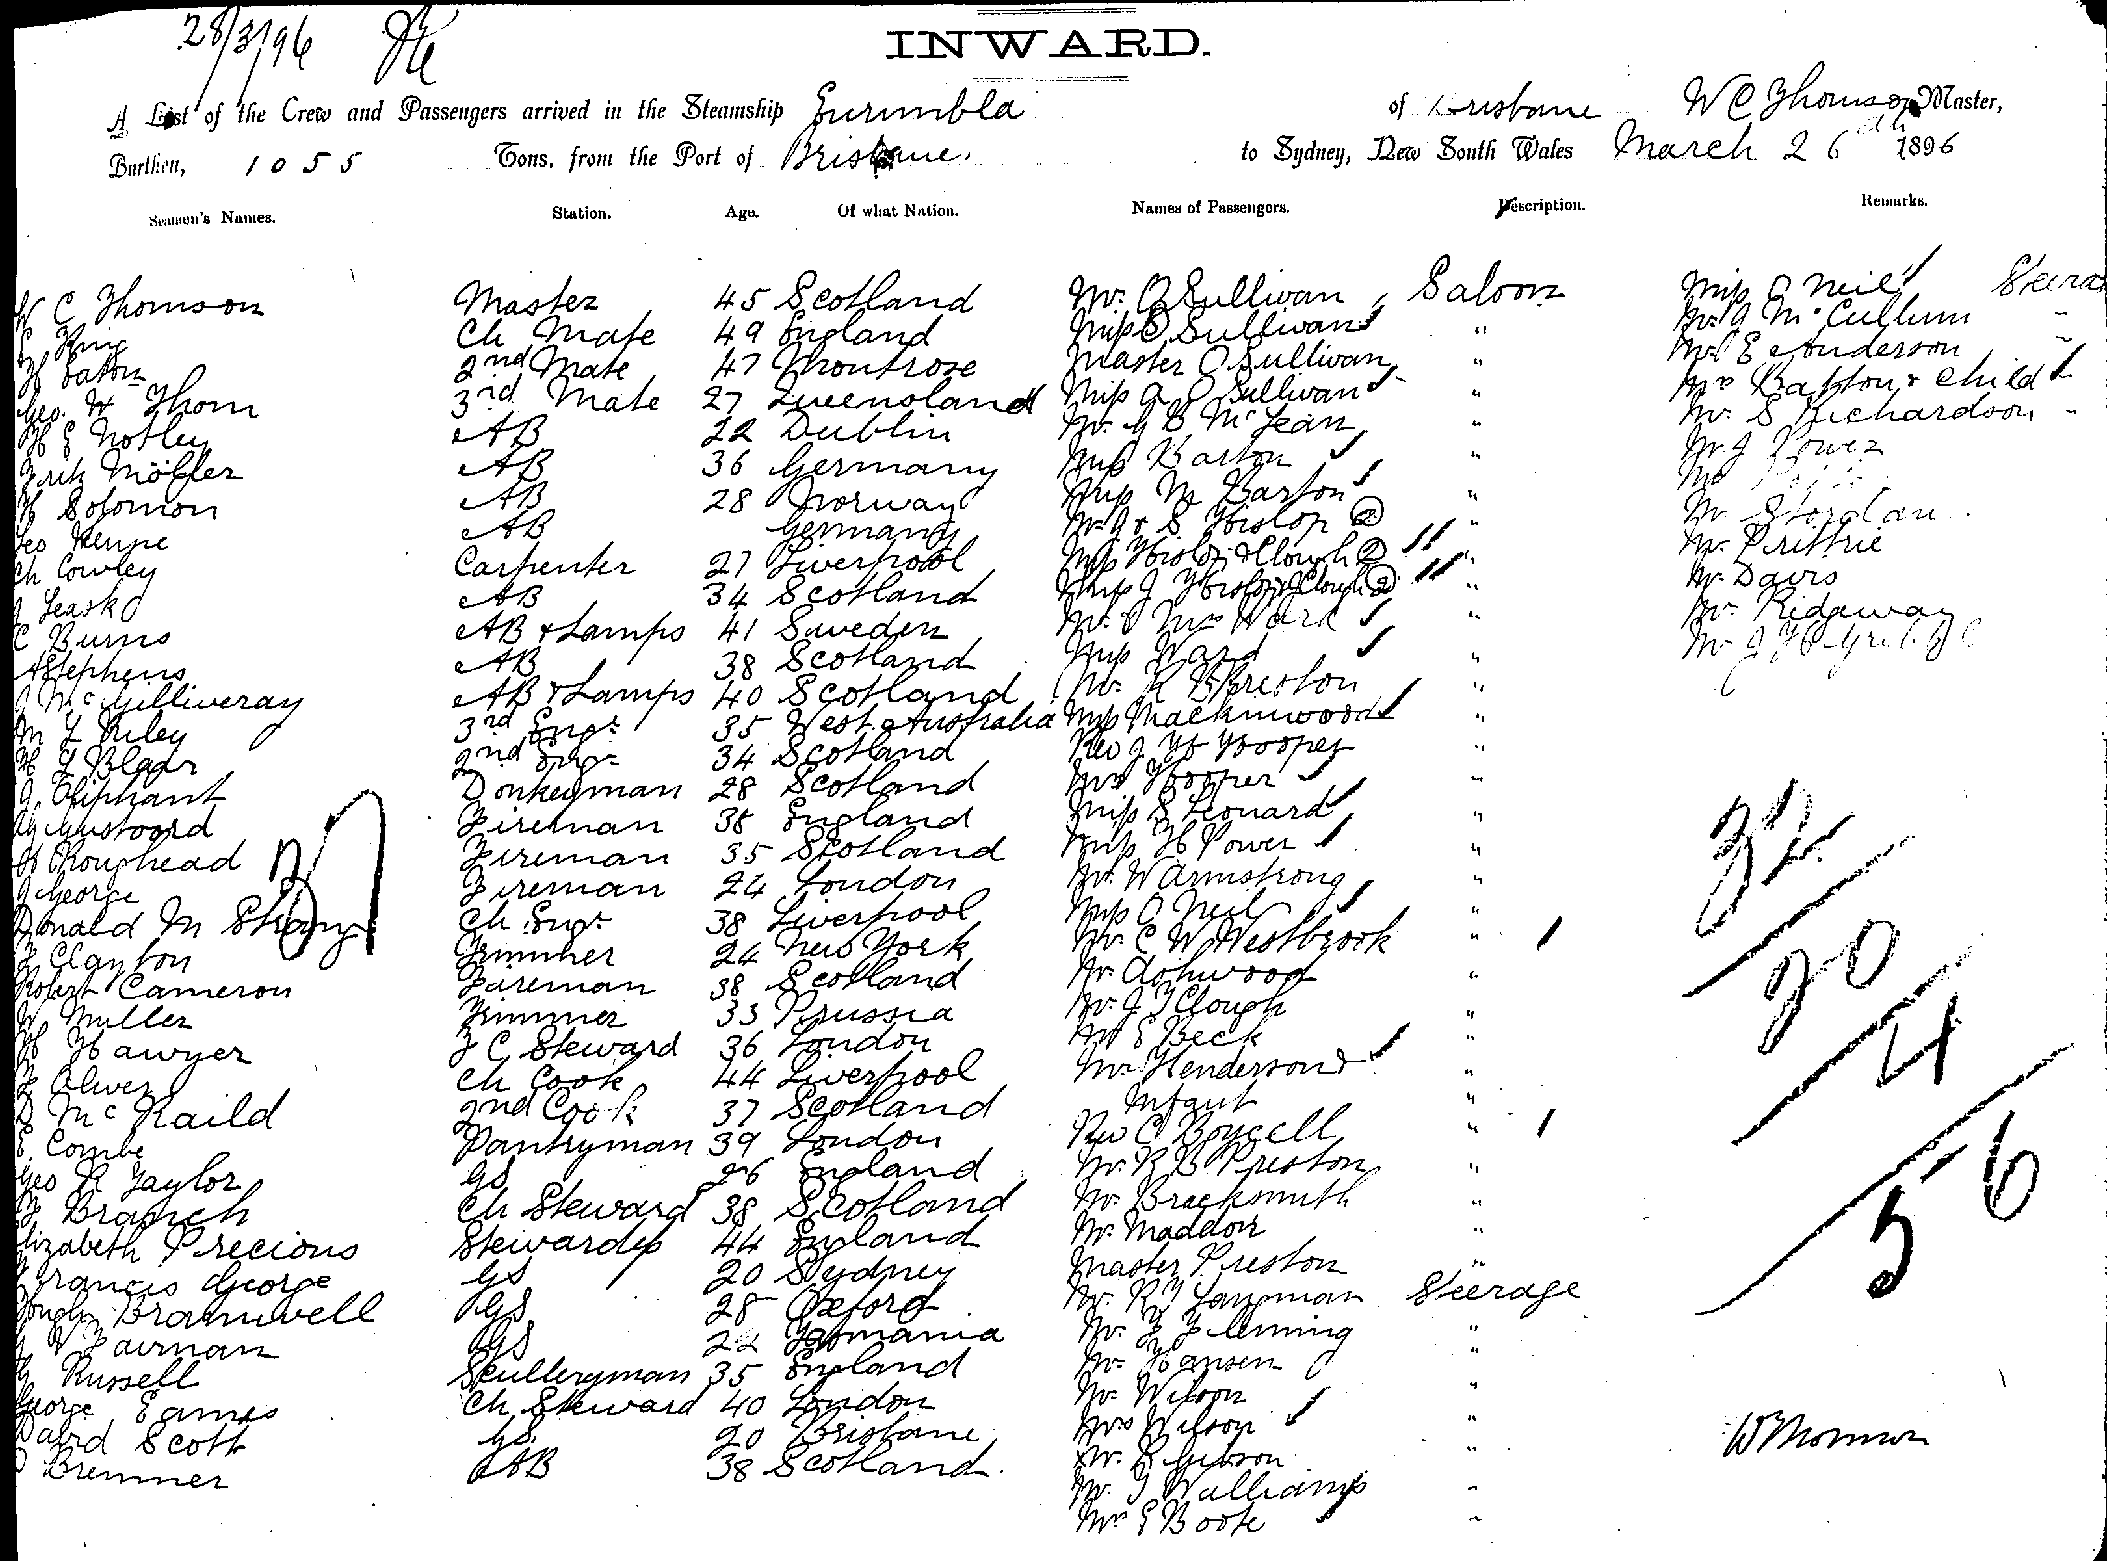 28/3/96
INWARD.
A List of the Crew and Passengers arrived in the Steamship Gurimbla of Brisbane W C Thomson Master,
Burthen, 1055 Tons, from the Port of Brisbane, to Sydney, New South Wales March 26th 1896
Seamen's Names. Station. Age. Of what Nation. Names of Passengers. Description. Remarks.
W C Thomson Master 45 Scotland Mr. O Sullivan Saloon Miss O Neil Steera
King Ch Mate 49 England Miss O Sullivan " Mr. J McCullum "
H Eaton 2nd Mate 47 Montrose Master O Sullivan " E Anderson "
Geo. W Thom 3rd Mate 27 Queensland Miss A O Sullivan " & Child
H E Notley AB 22 Dublin Mr. G B McLean " Mr. S Richardson "
Fritz Möller AB 36 Germany Miss Barton " Mr. J Power
H Solomon AB 28 Norway Miss M Barton "
Geo AB Germany Mr. J & S Hislop 2 " Mr
Ch Cowley Carpenter 27 Liverpool Hislop & Clough 2 " Mr.
J Leask AB 34 Scotland Miss J Hislop & Clough 2 " Mr. Davis
C Burns AB & Lamps 41 Sweden Mr. & Mrs Ward " Mr. Ridgway
A Stephens AB 38 Scotland Miss Ward " Mr J
J McGilliveray AB & Lamps 40 Scotland Mr. R B Preston "
M F Riley 3rd Engr 35 West Australia Miss Mackinwood "
H F Blair 2nd Engr 34 Scotland Rev J H Hooper "
J. Oliphant Donkeyman 28 Scotland Mrs Hooper "
Fireman 38 England Miss S Leonard "
H Roughead Fireman 35 Scotland Miss H Power "
J George Fireman 24 London Mr. W Armstrong "
Donald M Ch Engr 38 Liverpool Miss O Neil "
F Clayton Trimmer 24 New York Mr. C W Westbrook "
Robert Cameron Fireman 38 Scotland Mr. Ashwood "
W Muller Trimmer 33 Prussia Mr. J T Clough "
H Hawyer F C Steward 36 London Mr E Beck "
F Oliver Ch Cook 44 Liverpool Mrs Henderson & "
D McKaild 2nd Cook 37 Scotland Infant "
E. Combe Pantryman 39 London Rev C "
Geo R Taylor GS 26 England Mr. R B Preston "
F Branch Ch Steward 38 Scotland Mr. Brecksmith "
Elizabeth Precious Stewardess 44 England Mr. Maddox "
Francis George GS 20 Sydney Master Preston "
Bramwell GS 28 Oxford Mr. R J Langman Steerage
Fairman GS 22 Tasmania Mr. F Fleming "
Russell Sculleryman 35 England Mr. Hansen "
George Eames Ch Steward 40 London Mr. Wilson "
David Scott GS 20 Brisbane Mrs Wilson "
Bremner AB 38 Scotland. Mr. S Gibson "
Mr. J Williams "
Mr E Boote "
37
32
20
4
56
W Thomson